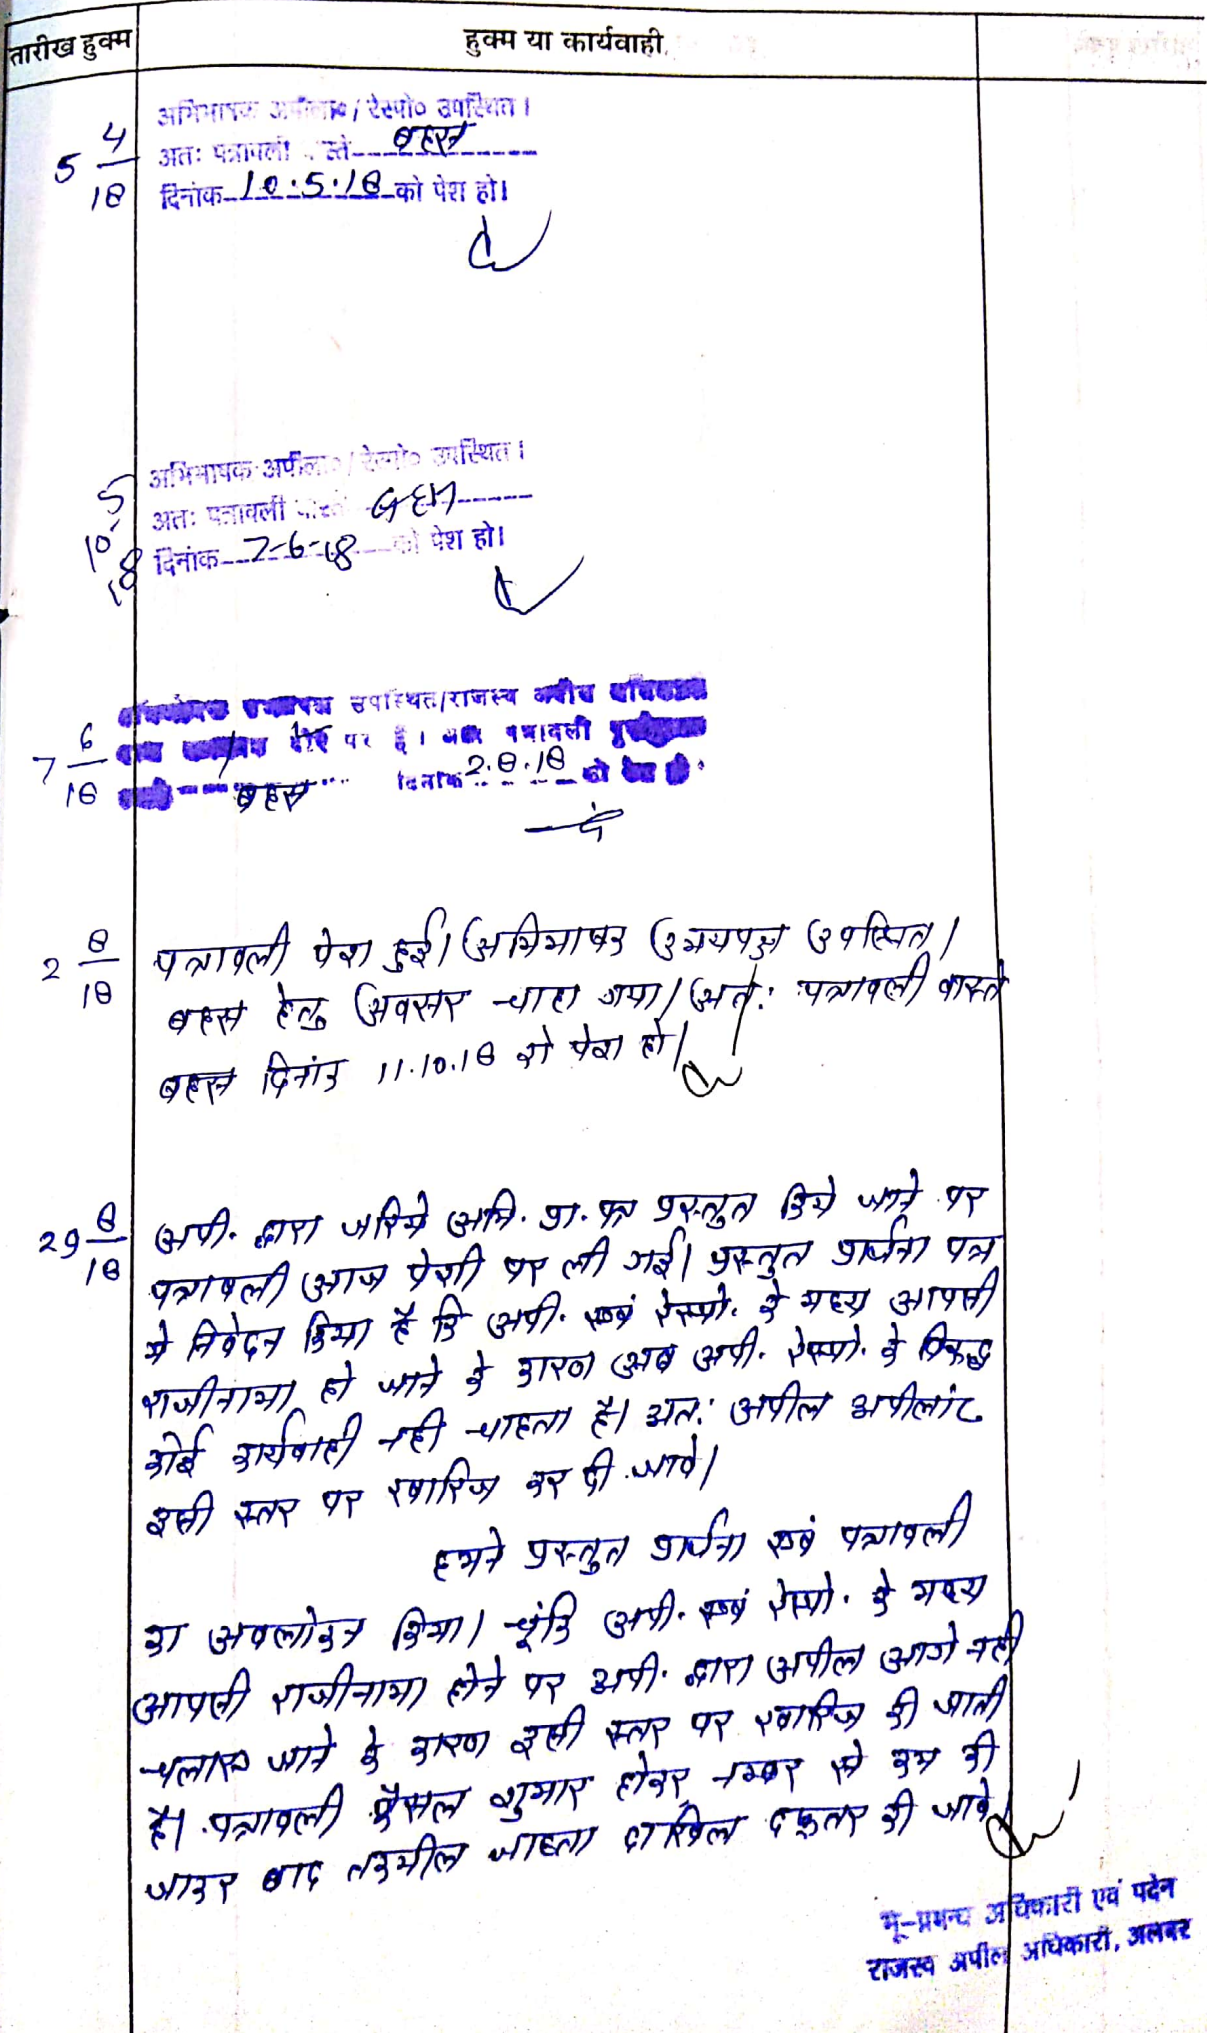 तारीख हुक्म
हुक्म या कार्यवाही
5 4/18
अभिभाषक अपीला०/रेस्पो० उपस्थित।
अतः पत्रावली वास्ते बहस
दिनांक 10.5.18 को पेश हो।
10/5/18
अभिभाषक अपीला०/रेस्पो० उपस्थित।
अतः पत्रावली वास्ते बहस
दिनांक 7-6-18 को पेश हो।
7 6/18
उपस्थित/राजस्व अपील अधिकारी
दौरे पर है। अतः पत्रावली
बहस दिनांक 2.8.18 को पेश हो।
2 8/18
पत्रावली पेश हुई। अभिभाषक उभयपक्ष उपस्थित।
बहस हेतु अवसर चाहा गया। अतः पत्रावली वास्ते
बहस दिनांक 11.10.18 को पेश हो।
29 8/18
अपी. द्वारा जरिये अभि. प्रा. पत्र प्रस्तुत किये जाने पर
पत्रावली आज पेशी पर ली गई। प्रस्तुत प्रार्थना पत्र
मे निवेदन किया है कि अपी. एवं रेस्पो. के मध्य आपसी
राजीनामा हो जाने के कारण अब अपी. रेस्पो. के विरूद्ध
कोई कार्यवाही नही चाहता है। अतः अपील अपीलांट
इसी स्तर पर खारिज कर दी जावे।
हमने प्रस्तुत प्रार्थना एवं पत्रावली
का अवलोकन किया। चूंकि अपी. एवं रेस्पो. के मध्य
आपसी राजीनामा होने पर अपी. द्वारा अपील आगे नही
चलाए जाने के कारण इसी स्तर पर खारिज की जाती
है। पत्रावली फैसल शुमार होकर नम्बर से कम की
जाकर बाद तकमील जाब्ता दाखिल दफ्तर की जावे।
भू-प्रबन्ध अधिकारी एवं पदेन
राजस्व अपील अधिकारी, अलवर